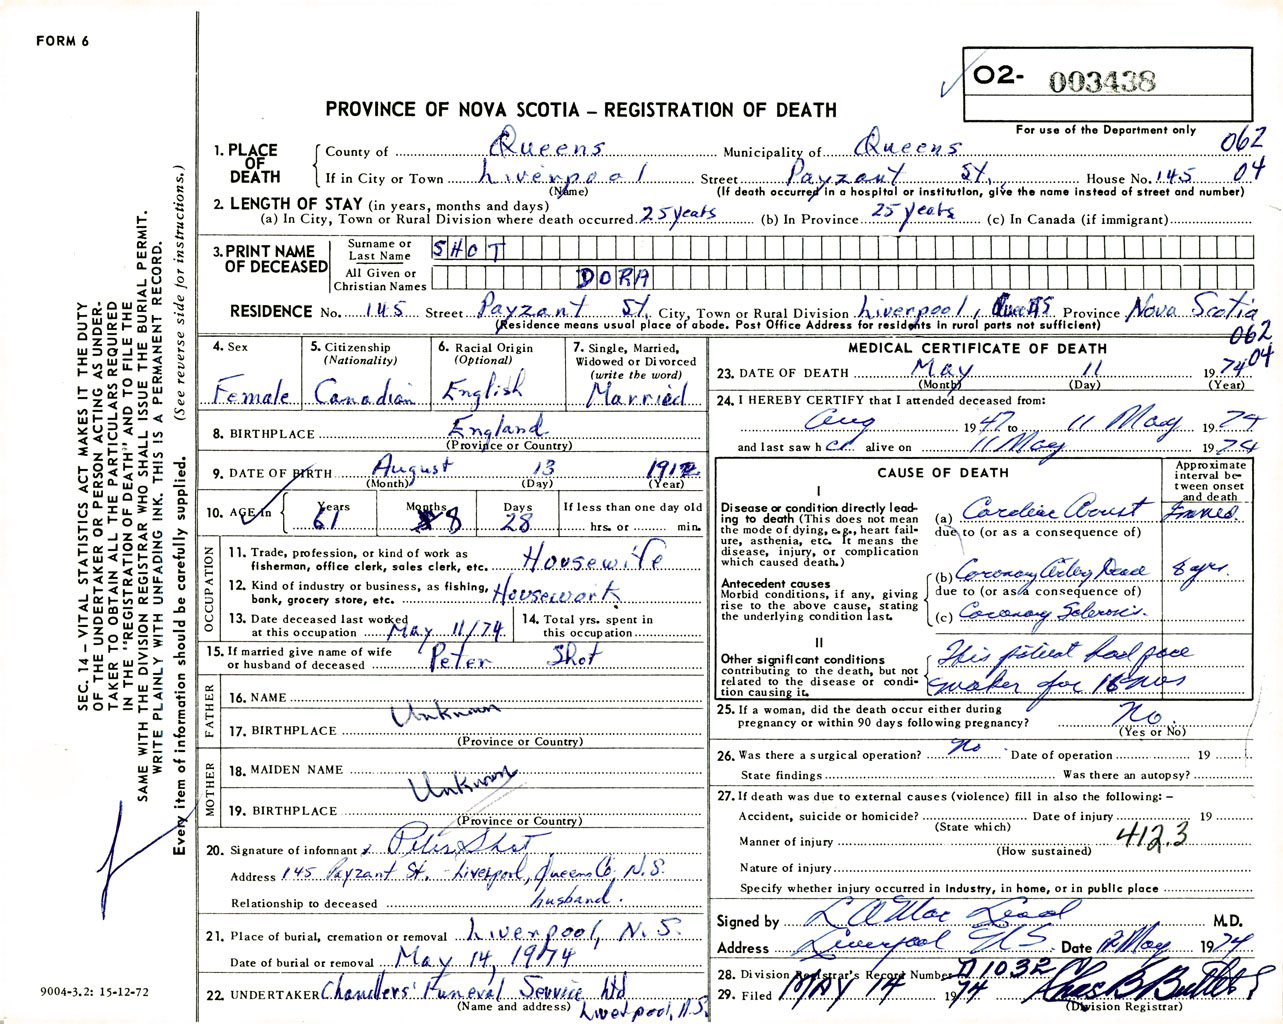 FORM 6
O2- 003438
PROVINCE OF NOVA SCOTIA – REGISTRATION OF DEATH
For use of the Department only
062
04
1. PLACE OF DEATH
County of Queens Municipality of Queens
If in City or Town Liverpool Street Payzant St. House No. 145
(Name) (If death occurred in a hospital or institution, give the name instead of street and number)
2. LENGTH OF STAY (in years, months and days)
(a) In City, Town or Rural Division where death occurred 25 years (b) In Province 25 years (c) In Canada (if immigrant)
3. PRINT NAME OF DECEASED
Surname or Last Name SHOT
All Given or Christian Names DORA
RESIDENCE No. 145 Street Payzant St. City, Town or Rural Division Liverpool, Queens Province Nova Scotia
(Residence means usual place of abode. Post Office Address for residents in rural parts not sufficient)
062
04
4. Sex Female
5. Citizenship (Nationality) Canadian
6. Racial Origin (Optional) English
7. Single, Married, Widowed or Divorced (write the word) Married
8. BIRTHPLACE England
(Province or Country)
9. DATE OF BIRTH August 13 1912
(Month) (Day) (Year)
10. AGE in Years 61 Months 8 Days 28 If less than one day old hrs. or min.
OCCUPATION
11. Trade, profession, or kind of work as fisherman, office clerk, sales clerk, etc. Housewife
12. Kind of industry or business, as fishing, bank, grocery store, etc. Housework
13. Date deceased last worked at this occupation May 11/74
14. Total yrs. spent in this occupation
15. If married give name of wife or husband of deceased Peter Shot
FATHER
16. NAME
Unknown
17. BIRTHPLACE
(Province or Country)
MOTHER
18. MAIDEN NAME
Unknown
19. BIRTHPLACE
(Province or Country)
20. Signature of informant x Peter Shot
Address 145 Payzant St. Liverpool, Queens Co, N.S.
Relationship to deceased husband.
21. Place of burial, cremation or removal Liverpool, N.S.
Date of burial or removal May 14, 1974
22. UNDERTAKER Chandlers' Funeral Service Ltd
(Name and address) Liverpool, N.S.
MEDICAL CERTIFICATE OF DEATH
23. DATE OF DEATH May 11 1974
(Month) (Day) (Year)
24. I HEREBY CERTIFY that I attended deceased from:
Aug 1947 to 11 May 1974
and last saw her alive on 11 May 1974
CAUSE OF DEATH
Approximate interval between onset and death
I
Disease or condition directly leading to death (This does not mean the mode of dying, e.g., heart failure, asthenia, etc. It means the disease, injury, or complication which caused death.)
(a) Cardiac Arrest Immed.
due to (or as a consequence of)
Antecedent causes
Morbid conditions, if any, giving rise to the above cause, stating the underlying condition last.
(b) Coronary Artery Disease 8 yrs.
due to (or as a consequence of)
(c) Coronary Sclerosis.
II
Other significant conditions contributing to the death, but not related to the disease or condition causing it.
This patient had pace
maker for 18 mos
25. If a woman, did the death occur either during pregnancy or within 90 days following pregnancy? No.
(Yes or No)
26. Was there a surgical operation? No Date of operation 19
State findings Was there an autopsy?
27. If death was due to external causes (violence) fill in also the following: –
Accident, suicide or homicide? Date of injury 19
(State which)
Manner of injury 412.3
(How sustained)
Nature of injury
Specify whether injury occurred in Industry, in home, or in public place
Signed by L A MacLeod M.D.
Address Liverpool N.S. Date 12 May 1974
28. Division Registrar's Record Number 1032
29. Filed MAY 14 1974
(Division Registrar)
SEC. 14 – VITAL STATISTICS ACT MAKES IT THE DUTY
OF THE UNDERTAKER OR PERSON ACTING AS UNDER-
TAKER TO OBTAIN ALL THE PARTICULARS REQUIRED
IN THE "REGISTRATION OF DEATH" AND TO FILE THE
SAME WITH THE DIVISION REGISTRAR WHO SHALL ISSUE THE BURIAL PERMIT.
WRITE PLAINLY WITH UNFADING INK. THIS IS A PERMANENT RECORD.
Every item of information should be carefully supplied. (See reverse side for instructions.)
9004-3.2: 15-12-72